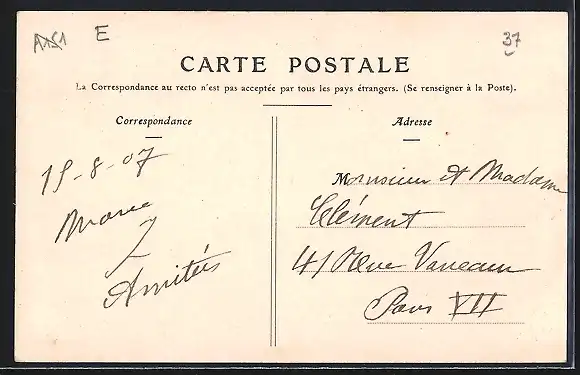 E
37
CARTE POSTALE
La Correspondance au recto n'est pas acceptée par tous les pays étrangers. (Se renseigner à la Poste).
Correspondance
Adresse
15-8-07
Amitiés
Monsieur et Madame
Clément
41 Rue Vaneau
Paris VII